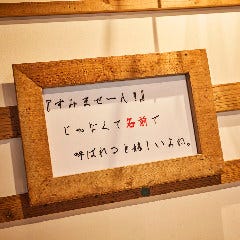 『すみませーん!』
じゃなくて名前で
呼ばれると嬉しいよね。